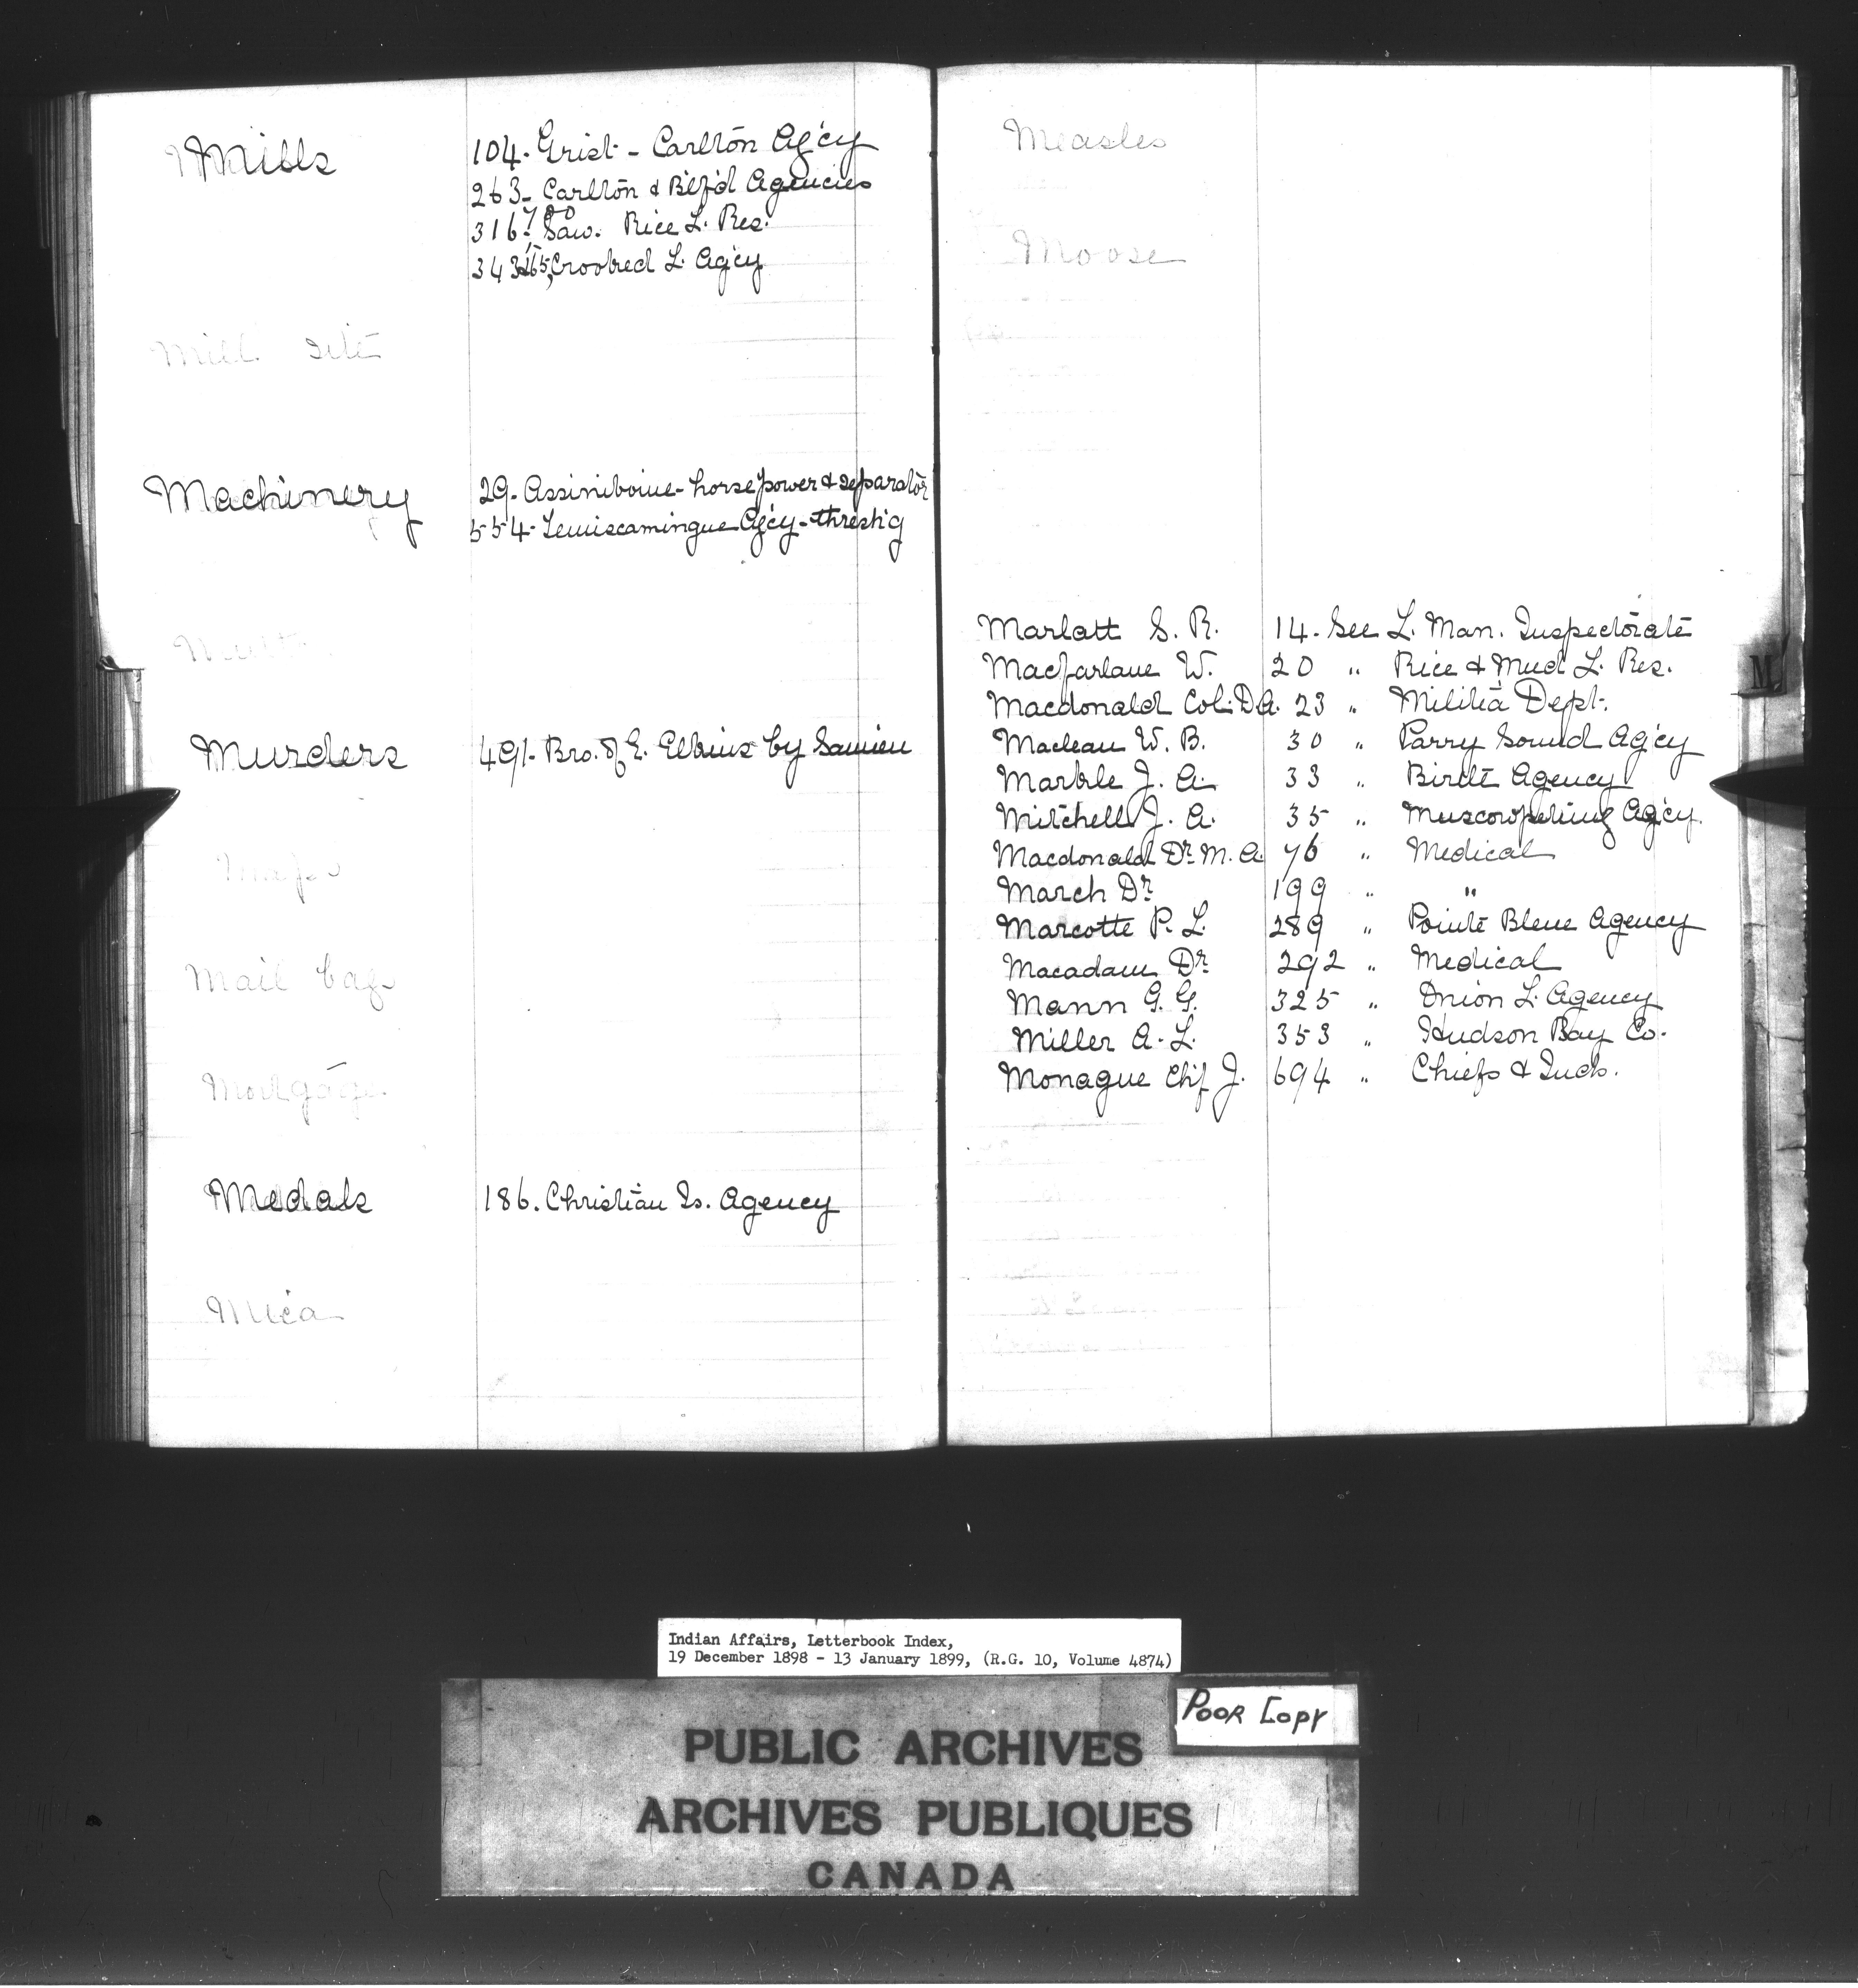 Mills 104. Grist - Carlton Ag'cy
263 - Carlton & B'lf'd Agencies
316. 780 Saw. Rice L. Res.
343, Crooked L. Ag'cy
Mill site
Machinery 29. Assiniboine - horse power & separator
554. Temiscamingue Ag'cy - thresh'g
Murders 491. Bro. of E. Elkins by
Maps
Mail bag
Mortgage
Medals 186. Christian Is. Agency
Mica
Measles
Moose
Marlatt S. R. 14. See L. Man. Inspectorate
Macfarlane W. 20 " Rice & Mud L. Res.
Macdonald Col. D.A. 23 " Militia Dept.
Maclean W. B. 30 " Parry Sound Ag'cy
Markle J. A. 33 " Birtle Agency
Mitchell J. A. 35 " Muscowpetung Ag'cy.
Macdonald Dr. M. A. 76 " Medical
March Dr. 199 " "
Marcotte P. L. 289 " Pointe Bleue Agency
Macadam Dr. 292 " Medical
Mann G. G. 325 " Onion L. Agency
Miller A. L. 353 " Hudson Bay Co.
Monague Chf J. 694 " Chiefs & Inds.
M
Indian Affairs, Letterbook Index,
19 December 1898 - 13 January 1899, (R.G. 10, Volume 4874)
POOR COPY
PUBLIC ARCHIVES
ARCHIVES PUBLIQUES
CANADA